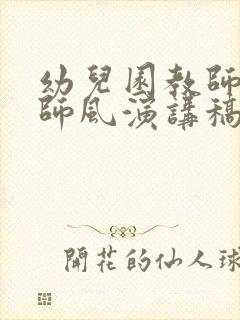 幼兒園教師
師風演講稿
開花的仙人球